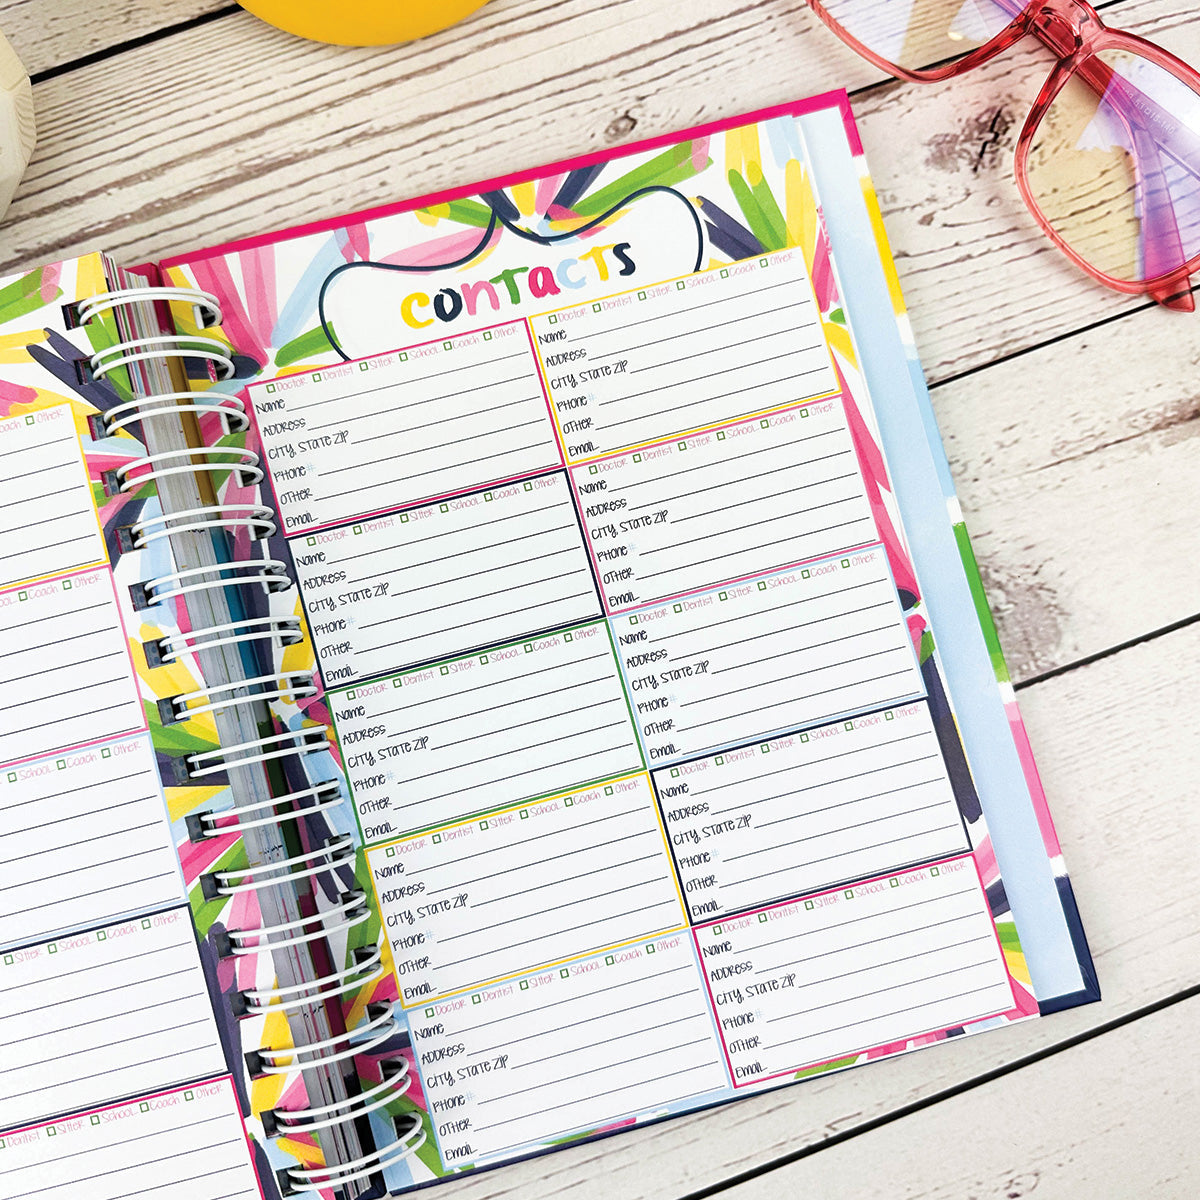 Other
Coach Other
School Coach Other
Sitter School Coach Other
Dentist Sitter School Coach Other
contacts
Doctor Dentist Sitter School Coach Other
Name
Address
City, State Zip
Phone #
Other
Email
Doctor Dentist Sitter School Coach Other
Name
Address
City, State Zip
Phone #
Other
Email
Doctor Dentist Sitter School Coach Other
Name
Address
City, State Zip
Phone #
Other
Email
Doctor Dentist Sitter School Coach Other
Name
Address
City, State Zip
Phone #
Other
Email
Doctor Dentist Sitter School Coach Other
Name
Address
City, State Zip
Phone #
Other
Email
Doctor Dentist Sitter School Coach Other
Name
Address
City, State Zip
Phone #
Other
Email
Doctor Dentist Sitter School Coach Other
Name
Address
City, State Zip
Phone #
Other
Email
Doctor Dentist Sitter School Coach Other
Name
Address
City, State Zip
Phone #
Other
Email
Doctor Dentist Sitter School Coach Other
Name
Address
City, State Zip
Phone #
Other
Email
Doctor Dentist Sitter School Coach Other
Name
Address
City, State Zip
Phone #
Other
Email